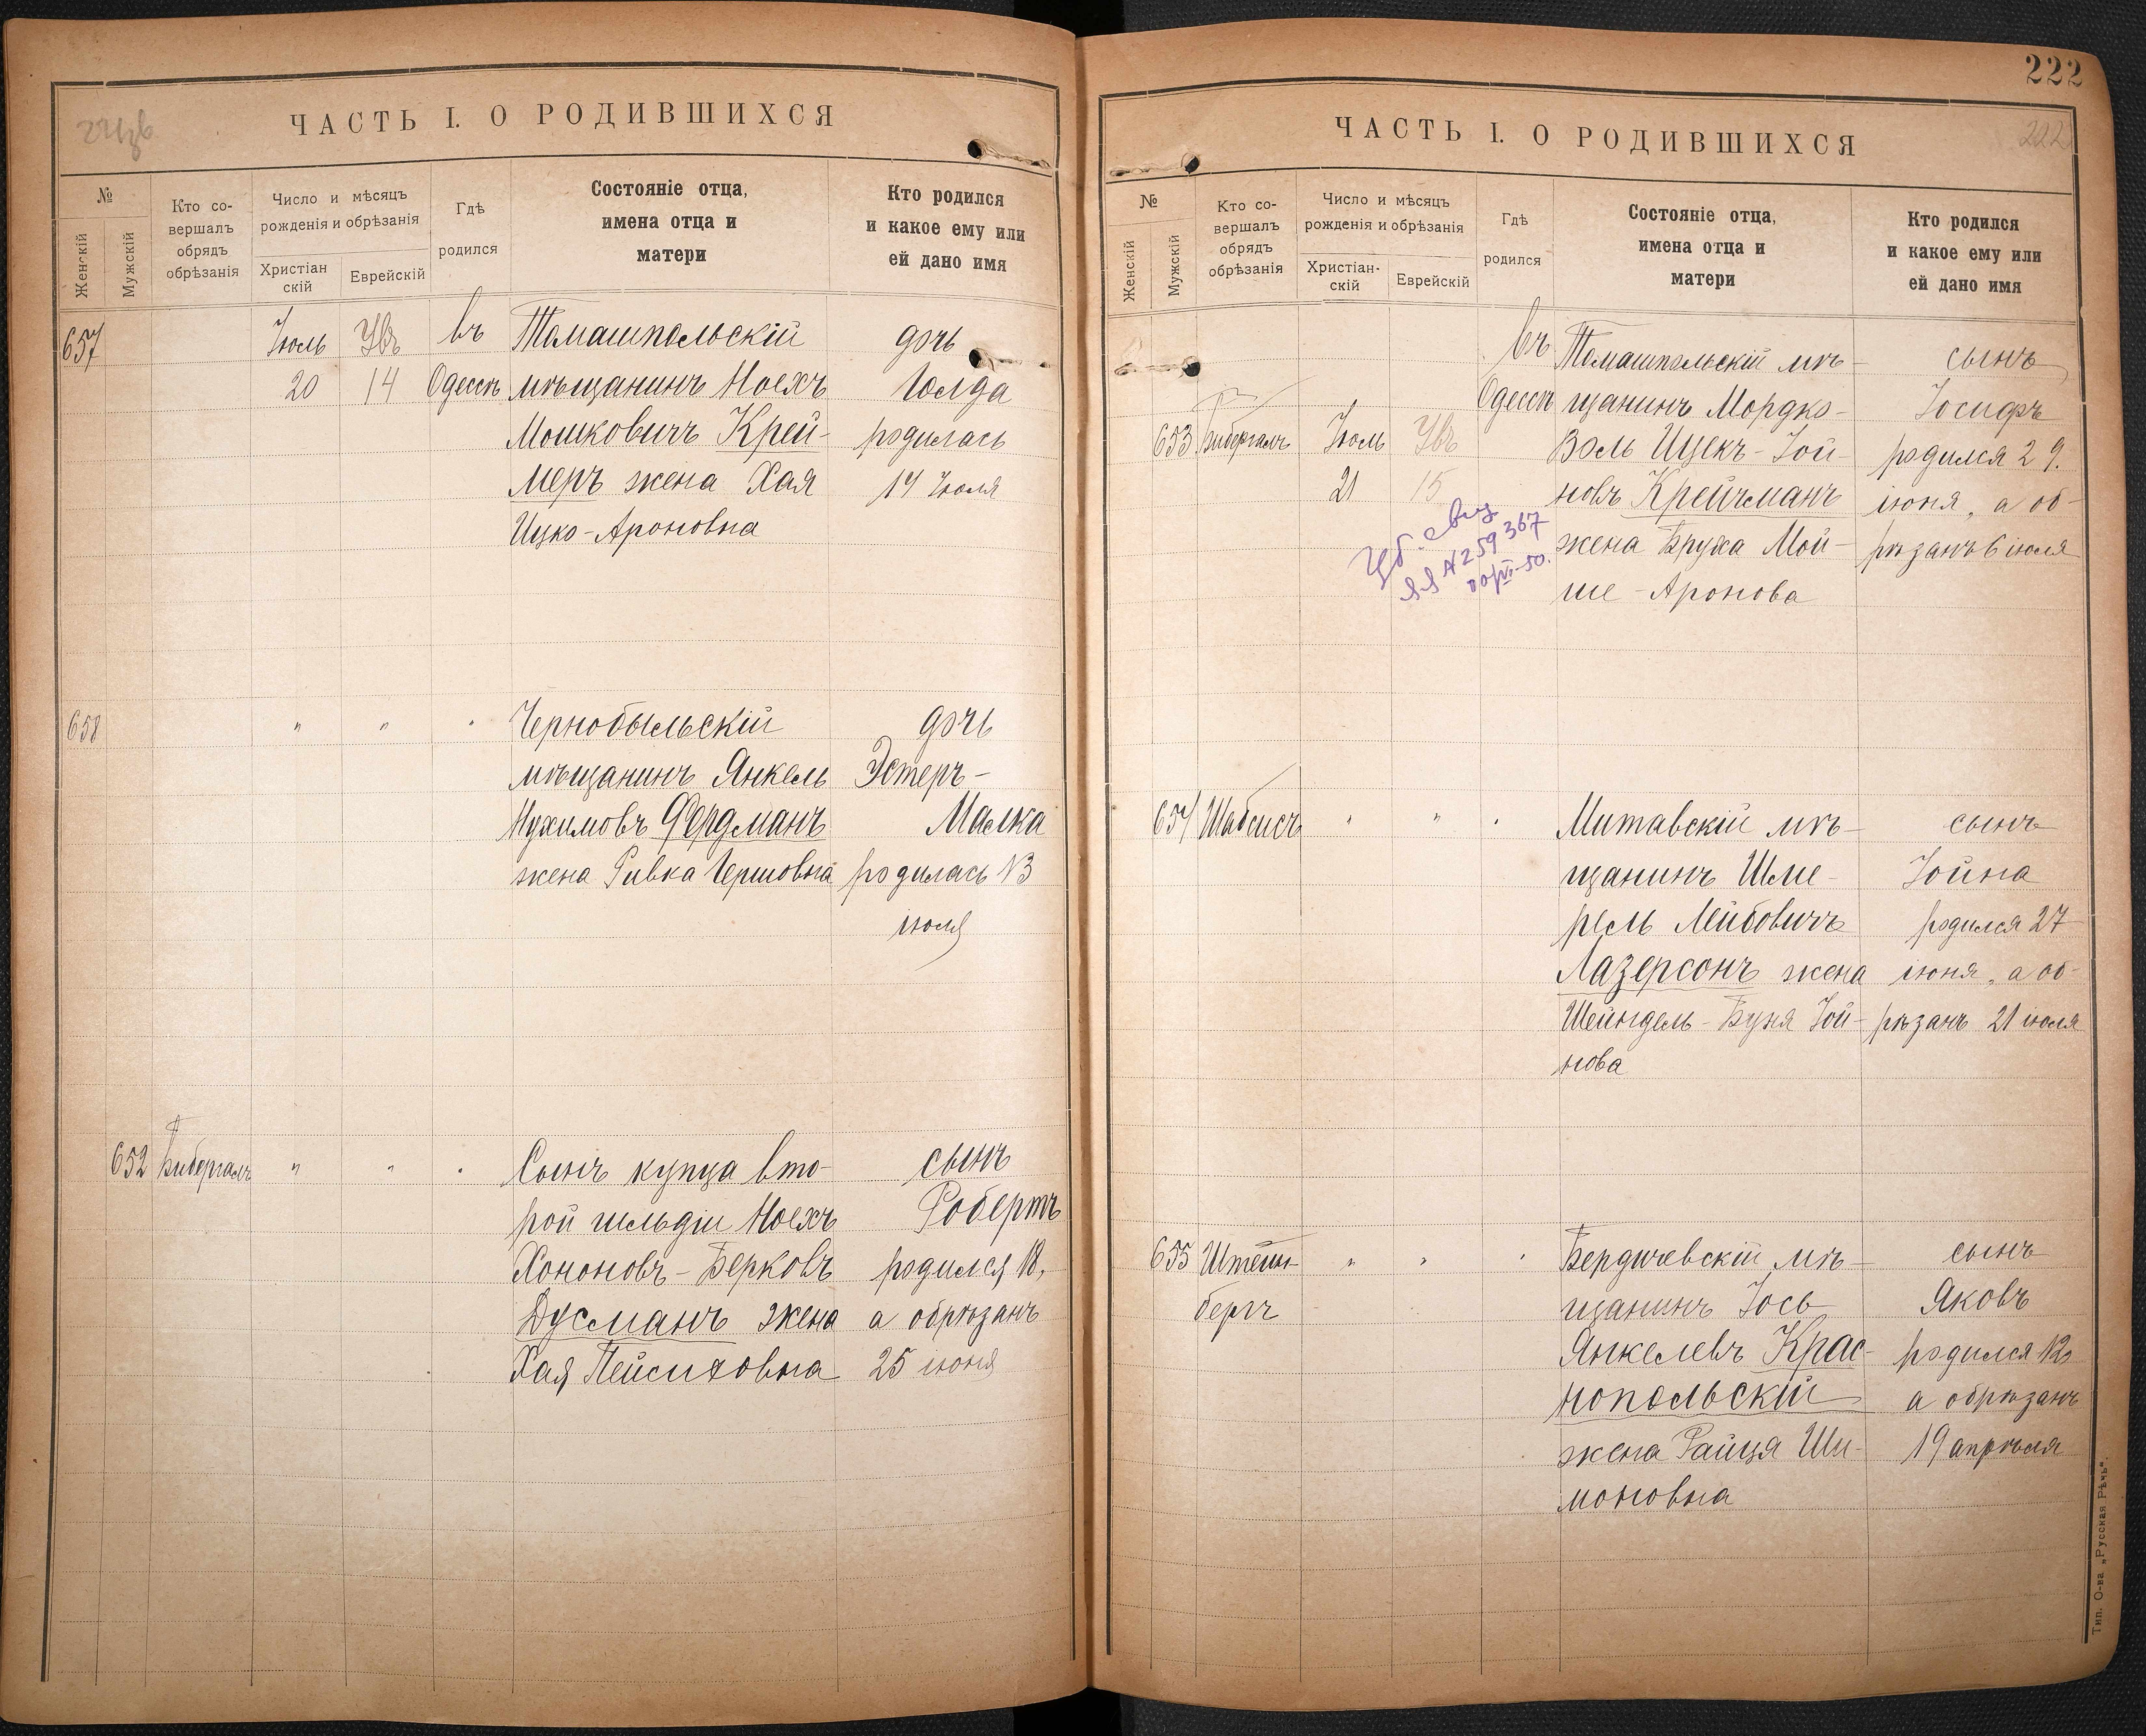 222
ЧАСТЬ I. О РОДИВШИХСЯ
№
Женскій
Мужскій
Кто со-
вершалъ
обрядъ
обрѣзанія
Число и мѣсяцъ
рожденія и обрѣзанія
Христіан
скій
Еврейскій
Гдѣ
родился
Состояніе отца,
имена отца и
матери
Кто родился
и какое ему или
ей дано имя
657
Іюль
20
14
въ
Одессѣ
Томашпольскій
мѣщанинъ Ноехъ
Мошковичъ Крей-
меръ жена Хая
Ицко-Ароновна
дочь
Голда
родилась
14 Іюля
658
" " "
Чернобыльскій
мѣщанинъ Янкель
Нухимовъ Фердманъ
жена Ривка Гершовна
дочь
Эстеръ-
Малка
родилась 13
іюля
652
Бибергалъ
" " "
Сынъ купца вто-
рой гильдіи Ноехъ
Хононовъ-Берковъ
Дусманъ жена
Хая Пейсиховна
сынъ
Робертъ
родился 18,
а обрѣзанъ
25 іюня
ЧАСТЬ I. О РОДИВШИХСЯ
222
№
Женскій
Мужскій
Кто со-
вершалъ
обрядъ
обрѣзанія
Число и мѣсяцъ
рожденія и обрѣзанія
Христіан-
скій
Еврейскій
Гдѣ
родился
Состояніе отца,
имена отца и
матери
Кто родился
и какое ему или
ей дано имя
653
Бибергалъ
Іюль
21
15
въ
Одессѣ
Томашпольскій мѣ-
щанинъ Мордко-
Воль Ицекъ-Іой-
новъ Крейчманъ
жена Бруха Мой-
ше-Аронова
сынъ
Іосифъ
родился 29.
іюня, а об-
рѣзанъ 6 іюля
N 259367
654
Шабсисъ
" " "
Митавскій мѣ-
щанинъ Шме-
рель Лейбовичъ
Лазерсонъ жена
Шейндель-Буня Іой-
нова
сынъ
Іойна
родился 27
іюня, а об-
рѣзанъ 21 іюля
655
Штейн-
бергъ
" " "
Бердичевскій мѣ-
щанинъ Іось
Янкелевъ Крас-
нопольскій
жена Райця Ши-
моновна
сынъ
Яковъ
родился 12
а обрѣзанъ
19 апрѣля
Тип. О-ва „Русская Рѣчь".